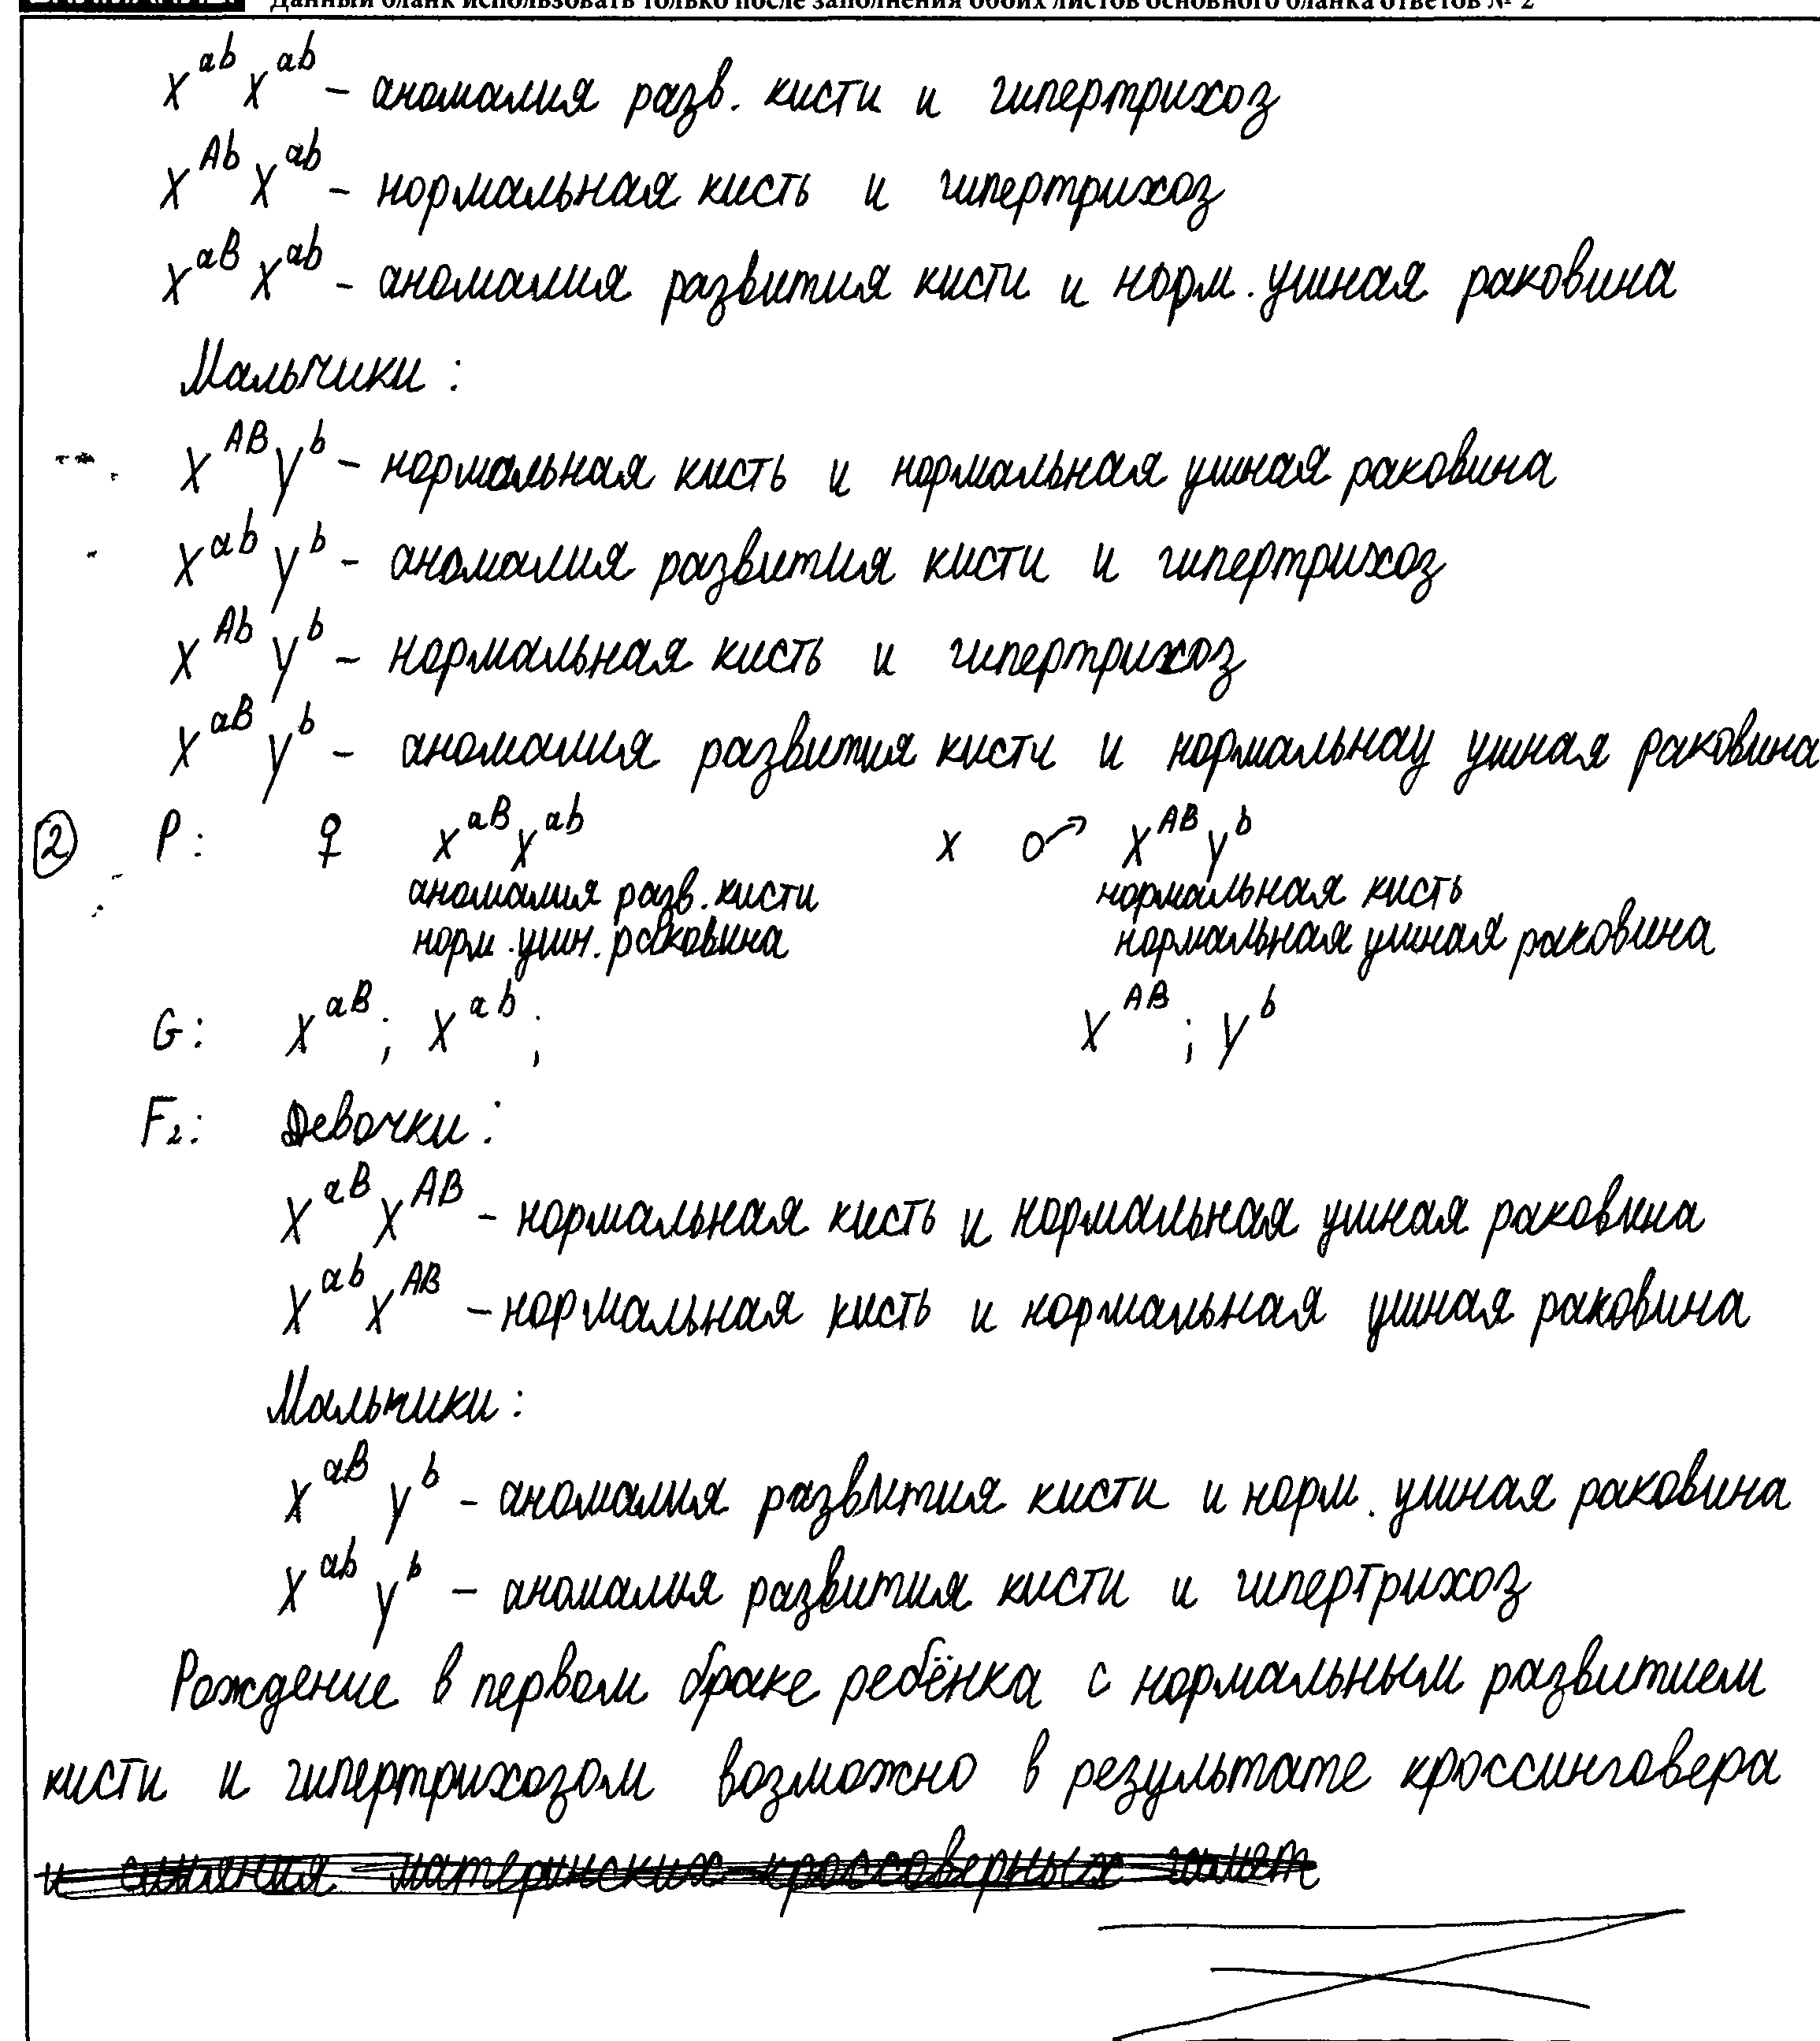 Данный бланк использовать только после заполнения обоих листов основного бланка ответов № 2
X^ab X^ab – аномалия разв. кисти и гипертрихоз
X^Ab X^ab – нормальная кисть и гипертрихоз
X^aB X^ab – аномалия развития кисти и норм. ушная раковина
Мальчики:
X^AB Y^b – нормальная кисть и нормальная ушная раковина
X^ab Y^b – аномалия развития кисти и гипертрихоз
X^Ab Y^b – нормальная кисть и гипертрихоз
X^aB Y^b – аномалия развития кисти и нормальнау ушная раковина
② P: ♀ X^aB X^ab x ♂ X^AB Y^b
аномалия разв. кисти нормальная кисть
норм. ушн. раковина нормальная ушная раковина
G: X^aB; X^ab; X^AB; Y^b
F₂: Девочки:
X^aB X^AB – нормальная кисть и нормальная ушная раковина
X^ab X^AB – нормальная кисть и нормальная ушная раковина
Мальчики:
X^aB Y^b – аномалия развития кисти и норм. ушная раковина
X^ab Y^b – аномалия развития кисти и гипертрихоз
Рождение в первом браке ребёнка с нормальным развитием
кисти и гипертрихозом возможно в результате кроссинговера
и слияния материнских кроссоверных гамет